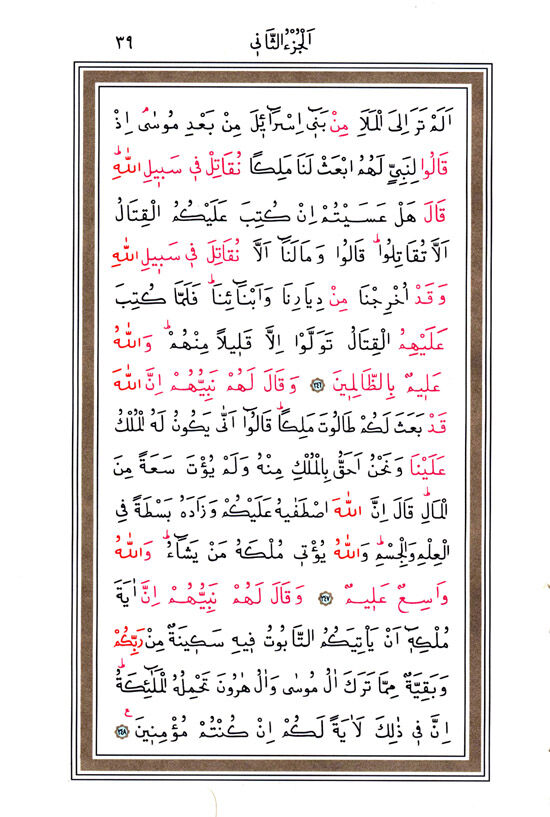 اَلْجُزْءُ الثَّانٖي ٣٩
اَلَمْ تَرَ اِلَى الْمَلَاِ مِنْ بَنٖٓي اِسْرَٓائٖلَ مِنْ بَعْدِ مُوسٰىۢ اِذْ
قَالُوا لِنَبِيٍّ لَهُمُ ابْعَثْ لَنَا مَلِكًا نُقَاتِلْ فٖي سَبٖيلِ اللّٰهِؕ
قَالَ هَلْ عَسَيْتُمْ اِنْ كُتِبَ عَلَيْكُمُ الْقِتَالُ
اَلَّا تُقَاتِلُواؕ قَالُوا وَمَا لَنَٓا اَلَّا نُقَاتِلَ فٖي سَبٖيلِ اللّٰهِ
وَقَدْ اُخْرِجْنَا مِنْ دِيَارِنَا وَاَبْنَٓائِنَاؕ فَلَمَّا كُتِبَ
عَلَيْهِمُ الْقِتَالُ تَوَلَّوْا اِلَّا قَلٖيلًا مِنْهُمْؕ وَاللّٰهُ
عَلٖيمٌ بِالظَّالِمٖينَ ﴿٢٤٦﴾ وَقَالَ لَهُمْ نَبِيُّهُمْ اِنَّ اللّٰهَ
قَدْ بَعَثَ لَكُمْ طَالُوتَ مَلِكًاؕ قَالُٓوا اَنّٰى يَكُونُ لَهُ الْمُلْكُ
عَلَيْنَا وَنَحْنُ اَحَقُّ بِالْمُلْكِ مِنْهُ وَلَمْ يُؤْتَ سَعَةً مِنَ
الْمَالِؕ قَالَ اِنَّ اللّٰهَ اصْطَفٰيهُ عَلَيْكُمْ وَزَادَهُ بَسْطَةً فِي
الْعِلْمِ وَالْجِسْمِؕ وَاللّٰهُ يُؤْتٖي مُلْكَهُ مَنْ يَشَٓاءُؕ وَاللّٰهُ
وَاسِعٌ عَلٖيمٌ ﴿٢٤٧﴾ وَقَالَ لَهُمْ نَبِيُّهُمْ اِنَّ اٰيَةَ
مُلْكِهٖٓ اَنْ يَاْتِيَكُمُ التَّابُوتُ فٖيهِ سَكٖينَةٌ مِنْ رَبِّكُمْ
وَبَقِيَّةٌ مِمَّا تَرَكَ اٰلُ مُوسٰى وَاٰلُ هٰرُونَ تَحْمِلُهُ الْمَلٰٓئِكَةُؕ
اِنَّ فٖي ذٰلِكَ لَاٰيَةً لَكُمْ اِنْ كُنْتُمْ مُؤْمِنٖينَ ع ﴿٢٤٨﴾